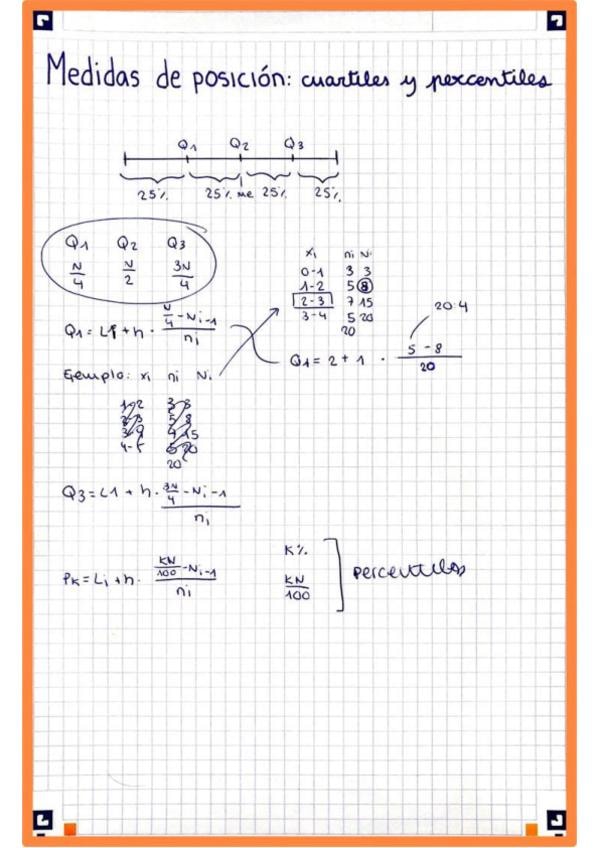 Medidas de posición: cuartiles y percentiles
Q1 Q2 Q3
25% 25% me 25% 25%
Q1 Q2 Q3
N/4 N/2 3N/4
xi ni Ni
0-1 3 3
1-2 5 8
2-3 7 15
3-4 5 20
20
Q1 = Li + h · (N/4 - Ni-1)/ni
20:4
Q1 = 2 + 1 · (5 - 8)/20
Ejemplo: xi ni Ni
4-5
20
Q3 = L1 + h · (3N/4 - Ni-1)/ni
K%
PK = Li + h · (KN/100 - Ni-1)/ni
KN/100
percentiles